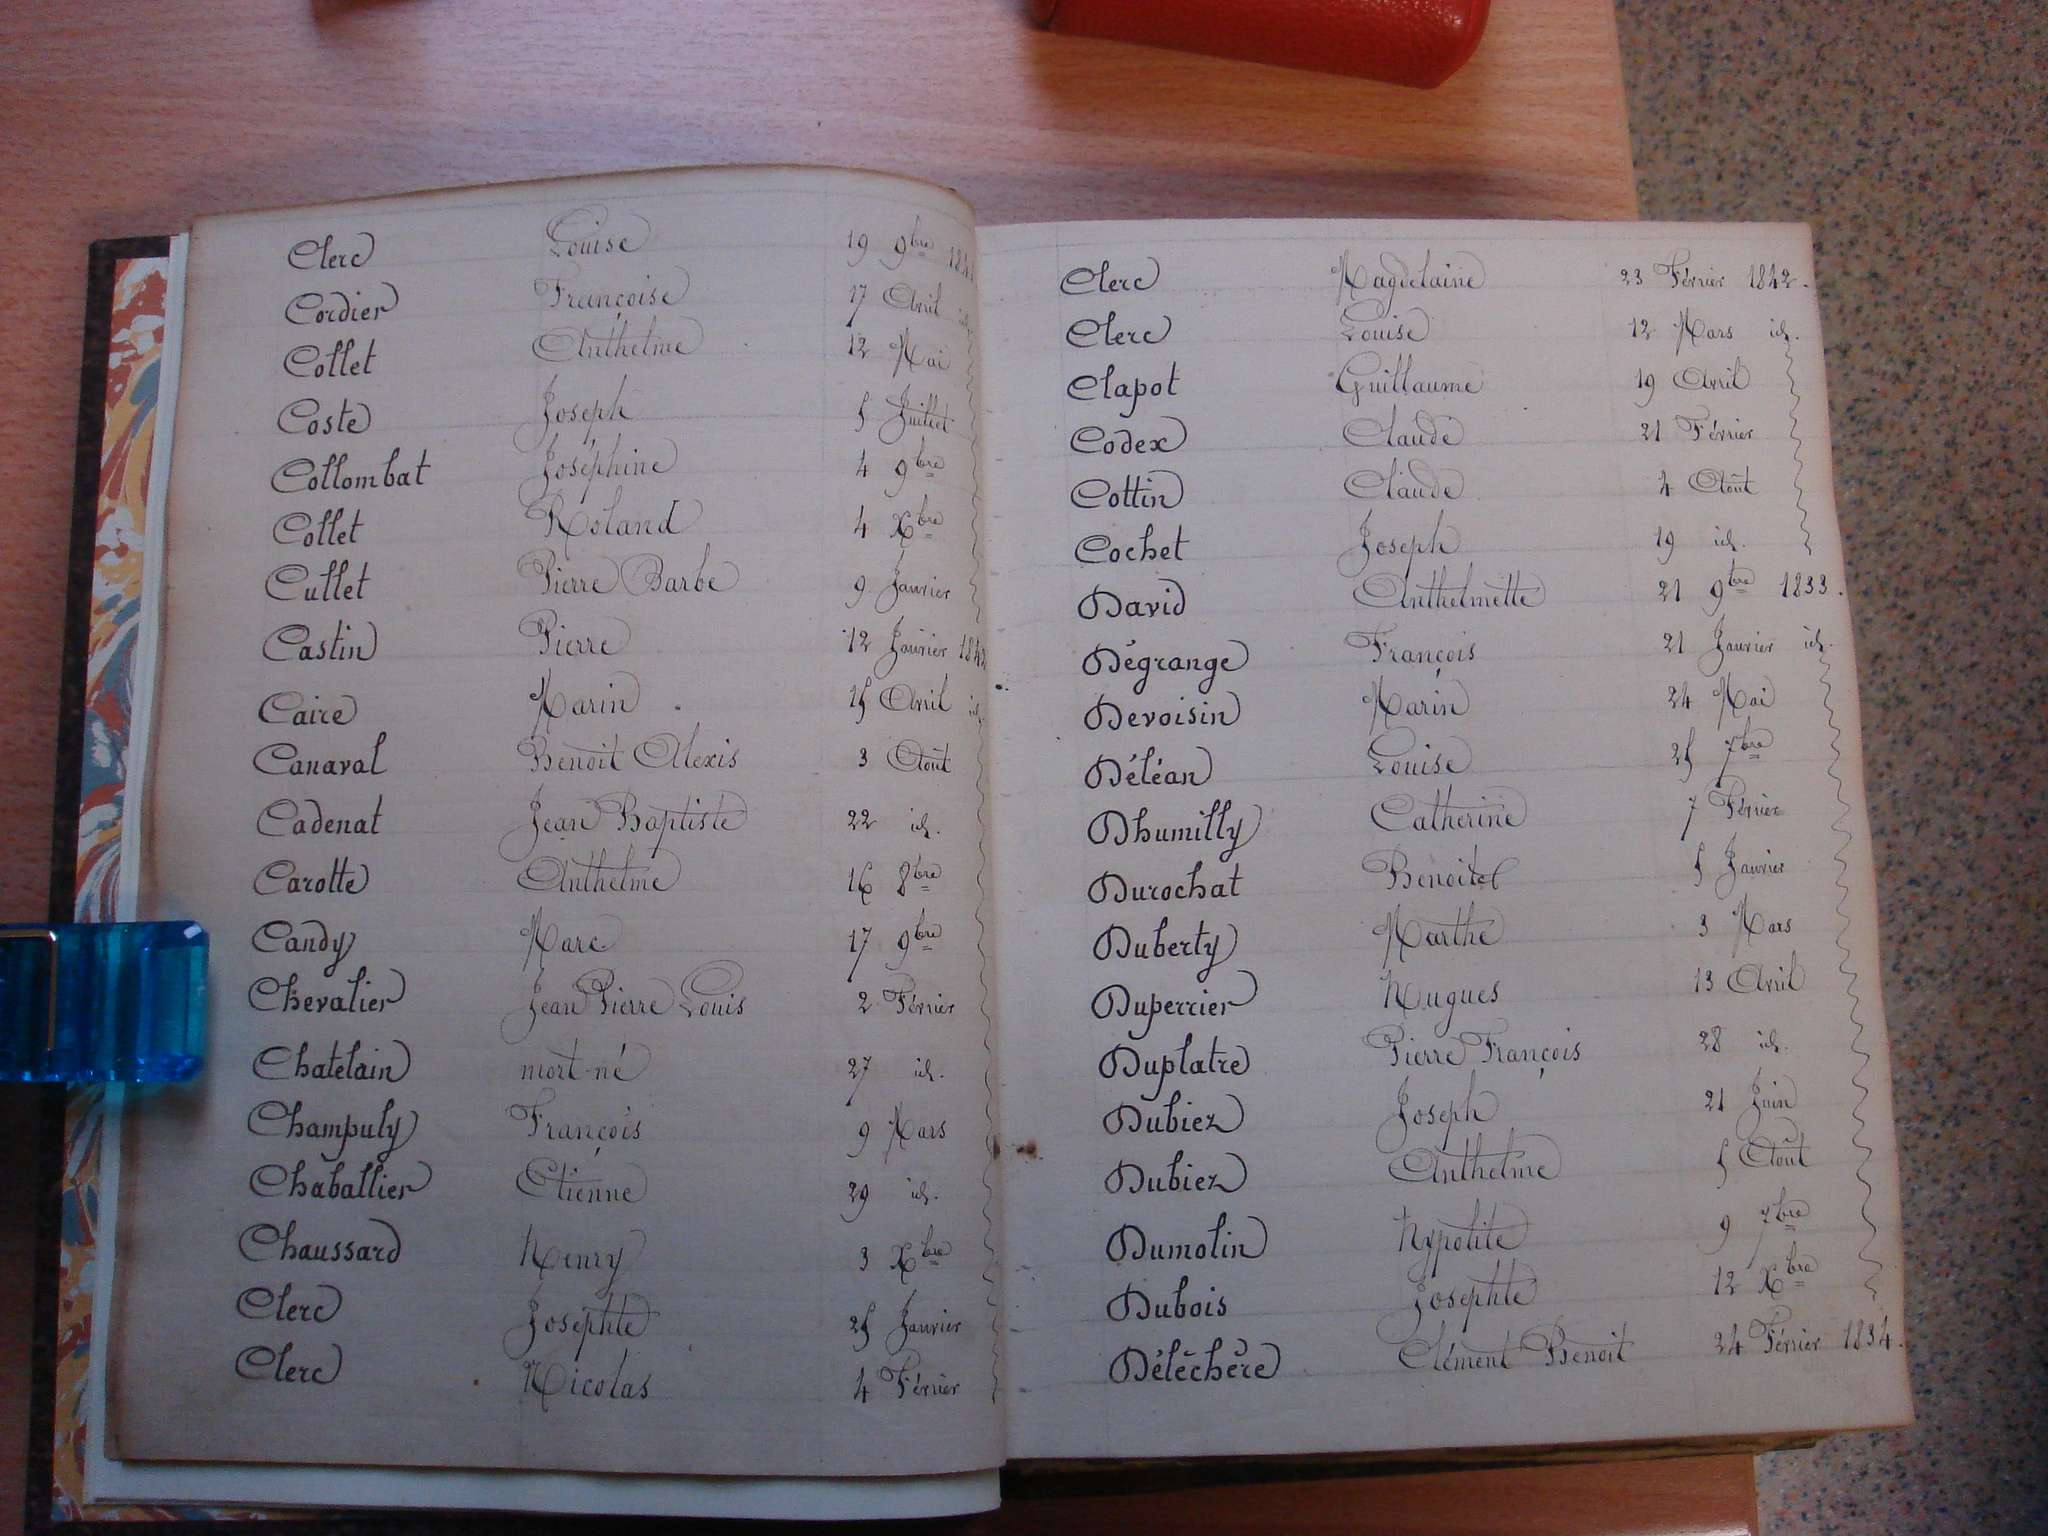 Clerc Louise 19 9bre
Cordier Françoise 17 Avril id.
Collet Anthelme 12 Mai
Coste Joseph 5 Juillet
Collombat Joséphine 4 9bre
Collet Roland 4 Xbre
Cullet Pierre Barbe 9 Janvier
Castin Pierre 12 Janvier 1842
Caire Marin 15 Avril id.
Canaval Benoit Alexis 3 Août
Cadenat Jean Baptiste 22 id.
Carotte Anthelme 16 8bre
Candy Marc 17 9bre
Chevalier Jean Pierre Louis 2 Février
Chatelain mort-né 27 id.
Champuly François 9 Mars
Chaballier Etienne 29 id.
Chaussard Henry 3 Xbre
Clerc Josephte 25 Janvier
Clerc Nicolas 4 Février
Clerc Magdelaine 23 Février 1842.
Clerc Louise 12 Mars id.
Clapot Guillaume 19 Avril
Codex Claude 21 Février
Cottin Claude 4 Août
Cochet Joseph 19 id.
David Anthelmette 21 9bre 1833.
Dégrange François 21 Janvier id.
Devoisin Marin 24 Mai
Déléan Louise 25 7bre
Dhumilly Catherine 7 Février
Durochat Benoite 5 Janvier
Duberty Marthe 3 Mars
Duperrier Hugues 13 Avril
Duplatre Pierre François 28 id.
Dubiez Joseph 21 Juin
Dubiez Anthelme 5 Août
Dumolin Hypolite 9 7bre
Dubois Josephte 12 Xbre
Délèchère Clément Benoit 24 Février 1834.